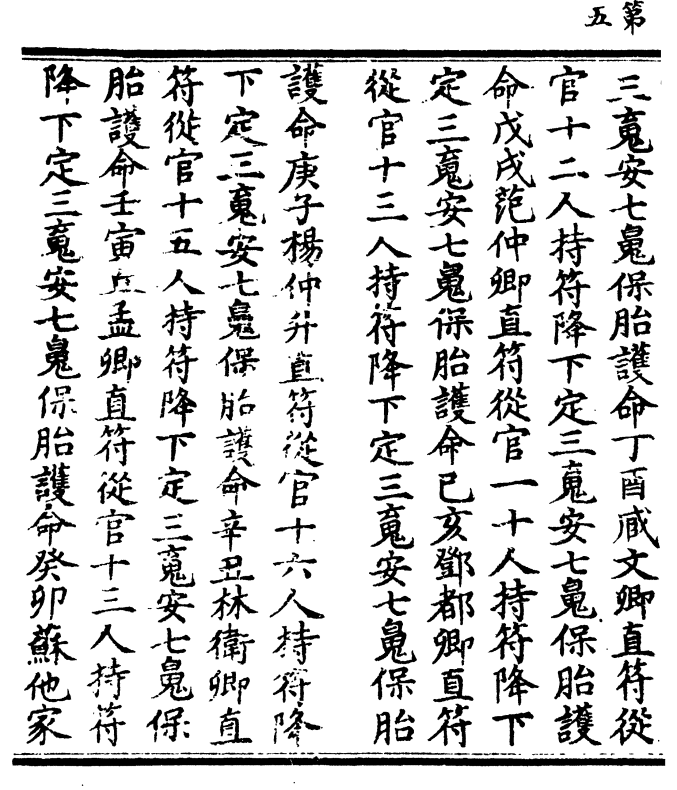 第五
三䰟安七䰟保胎護命丁酉臧文卿直符從
官十二人持符降下定三䰟安七䰟保胎護
命戊戌范仲卿直符從官一十人持符降下
定三䰟安七䰟保胎護命己亥鄧都卿直符
從官十三人持符降下定三䰟安七䰟保胎
護命庚子楊仲升直符從官十六人持符降
下定三䰟安七䰟保胎護命辛丑林衛卿直
符從官十五人持符降下定三䰟安七䰟保
胎護命壬寅丘孟卿直符從官十三人持符
降下定三䰟安七䰟保胎護命癸卯蘇他家